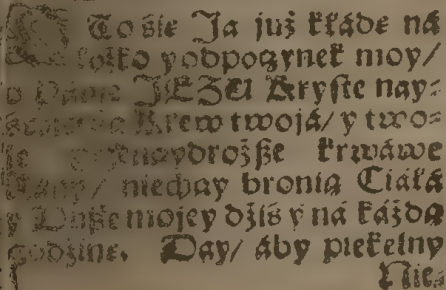 Tośie Ja już kłáde ná
łożko y odpoczynek moy/
o Pánie JEZU Kryste nay-
Krew twojá/ y two-
naydroższe krwáwe
Rány/ niechay bronią Ciáłá
y Dusze mojey dźiś y ná káżdą
godźinę. Day/ áby piekelny
Nie-